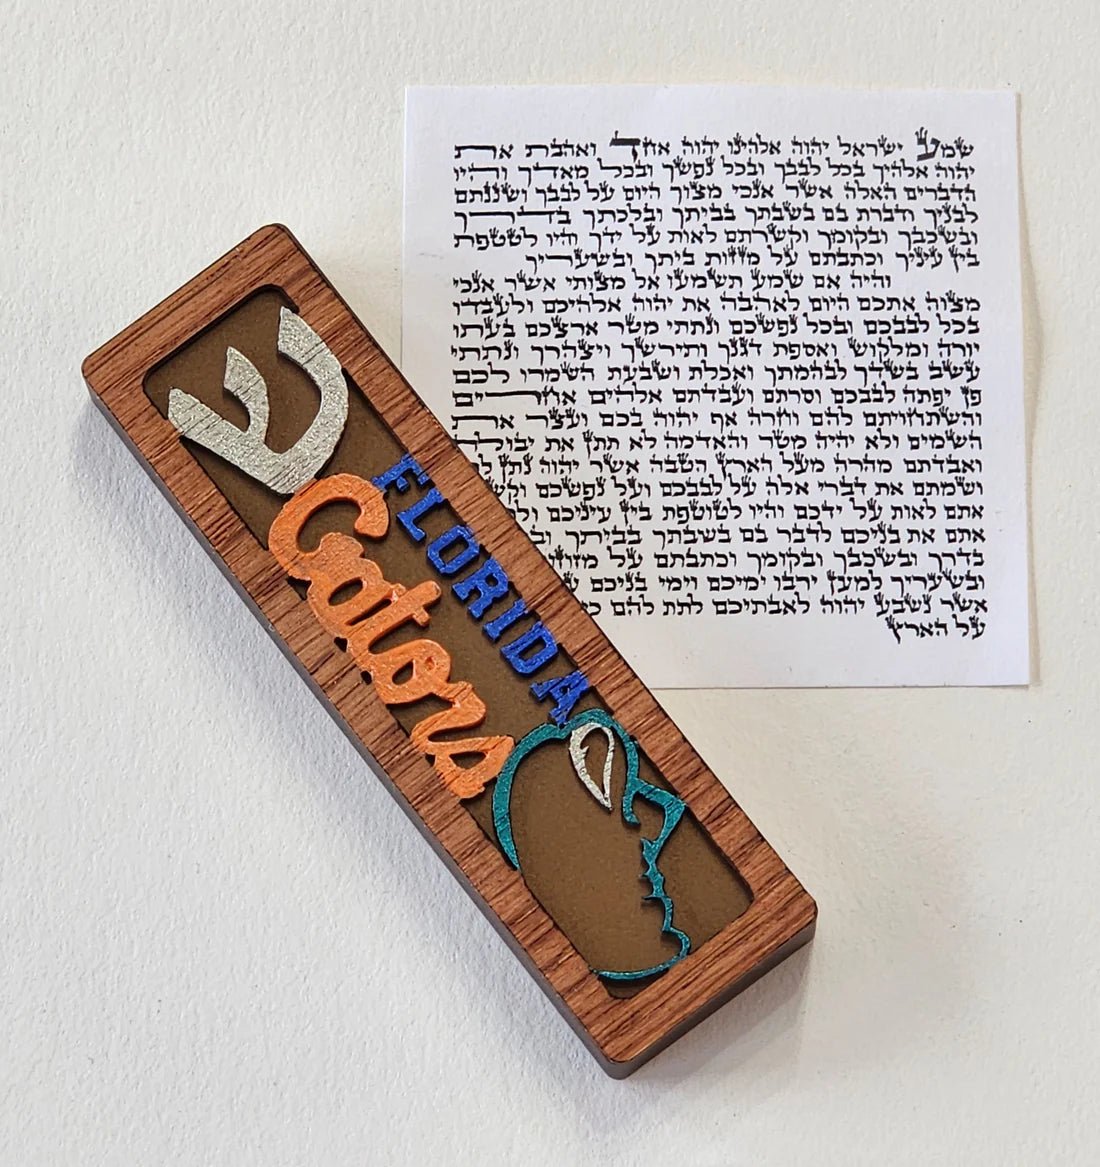 ש
FLORIDA
Gators
שמע ישראל יהוה אלהינו יהוה אחד ואהבת את
יהוה אלהיך בכל לבבך ובכל נפשך ובכל מאדך והיו
הדברים האלה אשר אנכי מצוך היום על לבבך ושננתם
לבניך ודברת בם בשבתך בביתך ובלכתך בדרך
ובשכבך ובקומך וקשרתם לאות על ידך והיו לטטפת
בין עיניך וכתבתם על מזזות ביתך ובשעריך
והיה אם שמע תשמעו אל מצותי אשר אנכי
מצוה אתכם היום לאהבה את יהוה אלהיכם ולעבדו
בכל לבבכם ובכל נפשכם ונתתי מטר ארצכם בעתו
יורה ומלקוש ואספת דגנך ותירשך ויצהרך ונתתי
עשב בשדך לבהמתך ואכלת ושבעת השמרו לכם
פן יפתה לבבכם וסרתם ועבדתם אלהים אחרים
והשתחויתם להם וחרה אף יהוה בכם ועצר את
השמים ולא יהיה מטר והאדמה לא תתן את יבולה
ואבדתם מהרה מעל הארץ הטבה אשר יהוה נתן
ושמתם את דברי אלה על לבבכם ועל נפשכם
אתם לאות על ידכם והיו לטוטפת בין עיניכם
אתם את בניכם לדבר בם בשבתך בביתך
בדרך ובשכבך ובקומך וכתבתם על
ובשעריך למען ירבו ימיכם וימי בניכם
אשר נשבע יהוה לאבתיכם לתת להם
על הארץ